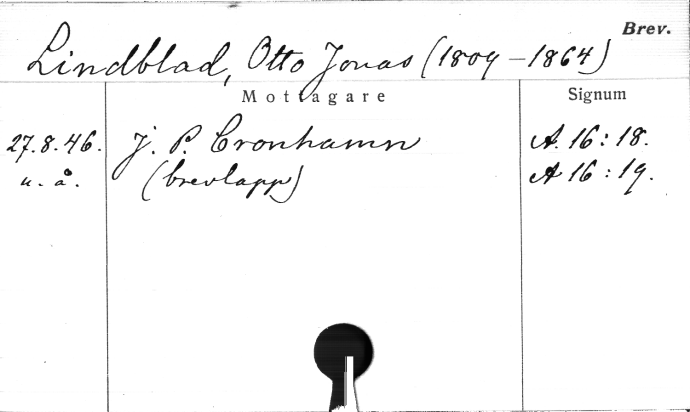 Brev.
Lindblad, Otto Jonas (1809-1864)
Mottagare Signum
27.8.46. J. P. Cronhamn A. 16:18.
u. å. (brevlapp) A 16:19.